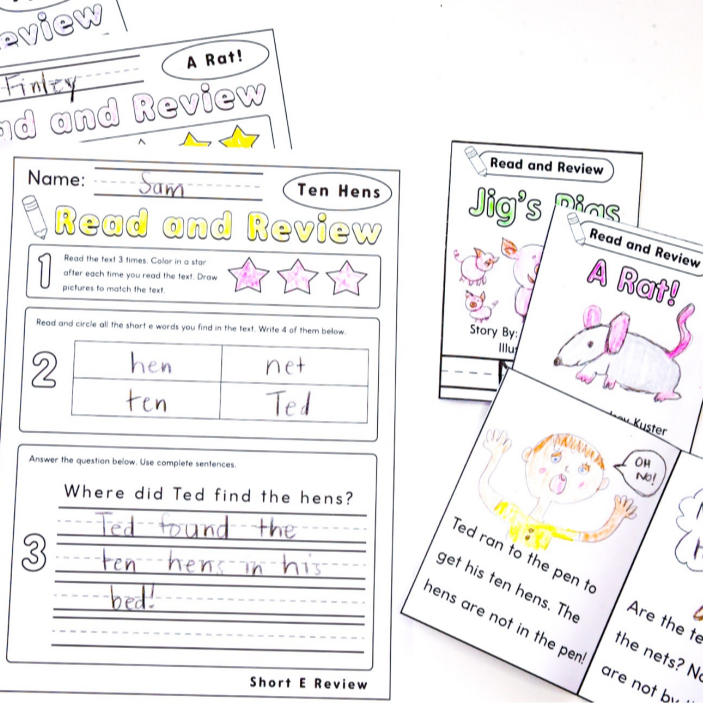 eview
A Rat!
Finley
nd and Review
Name: Sam
Ten Hens
Read and Review
1
Read the text 3 times. Color in a star
after each time you read the text. Draw
pictures to match the text.
Read and circle all the short e words you find in the text. Write 4 of them below.
2
hen net
ten Ted
Answer the question below. Use complete sentences.
3
Where did Ted find the hens?
Ted found the
ten hens in his
bed!
Short E Review
Read and Review
Jig's Pigs
Story By:
Illus
Read and Review
A Rat!
Kuster
OH
NO!
Ted ran to the pen to
get his ten hens. The
hens are not in the pen!
Are the te
the nets? No
are not by